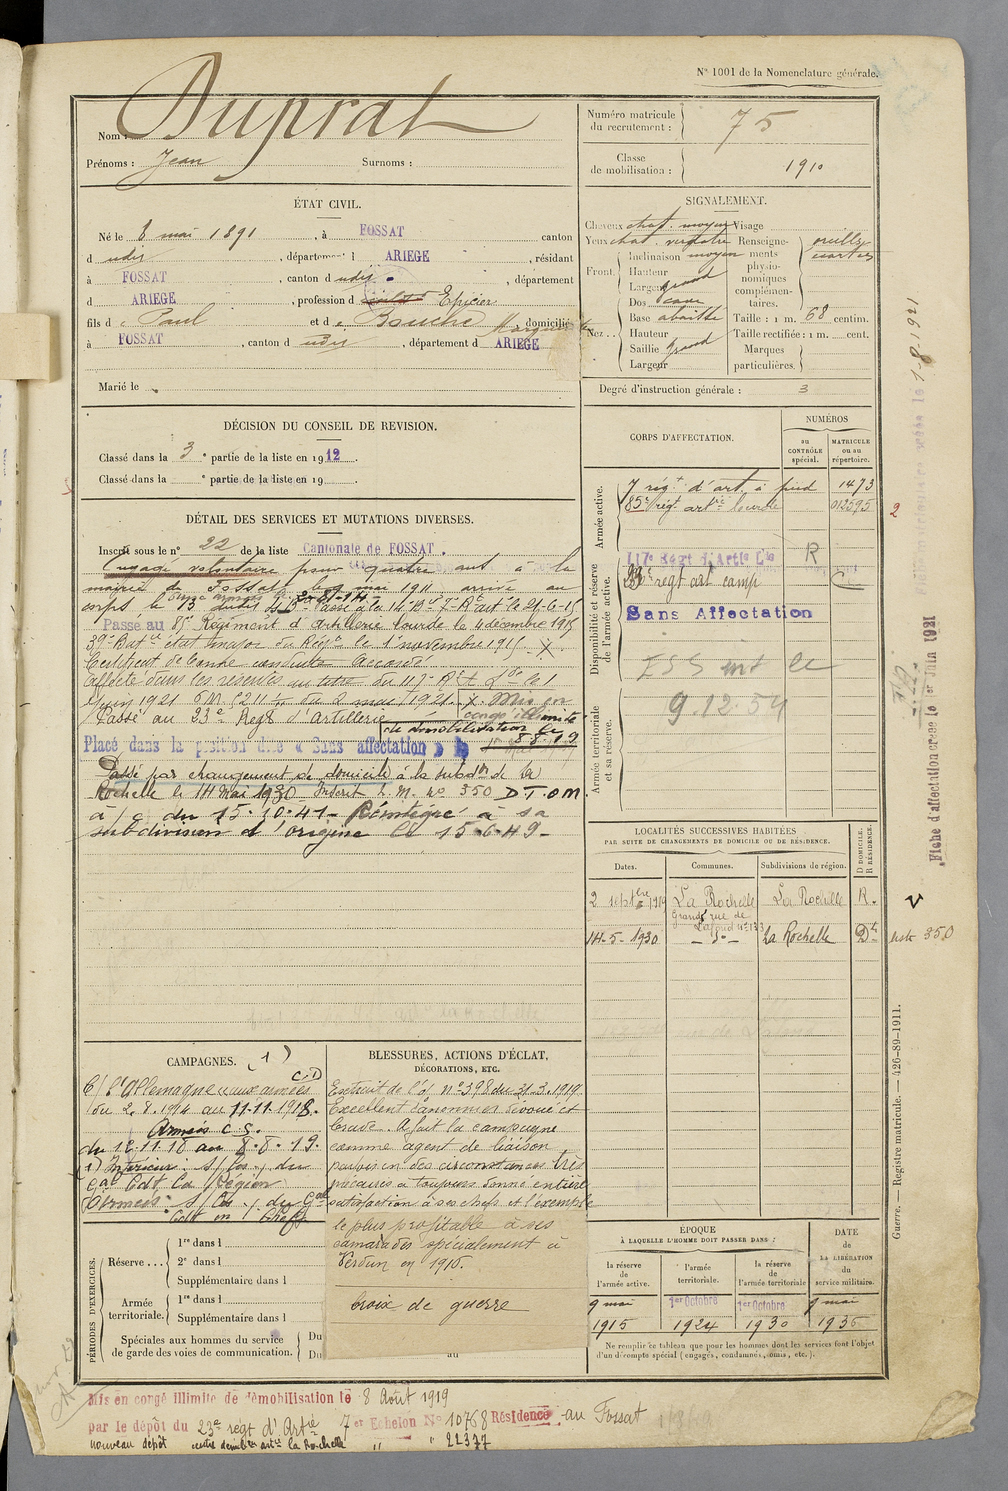 N° 1001 de la Nomenclature générale.
Nom : Duprat
Prénoms : Jean Surnoms :
Numéro matricule du recrutement : 75
Classe de mobilisation : 1910
ÉTAT CIVIL.
Né le 8 mai 1891, à FOSSAT canton
d udit, département d ARIEGE, résidant
à FOSSAT, canton d udit, département
d ARIEGE, profession d Epicier
fils de Paul et de Bouche Marguerite domicilié
à FOSSAT, canton d udit, département d ARIEGE
Marié le
SIGNALEMENT.
Cheveux chat. moyen Visage
Yeux chat. verdatre Renseigne-
Front. Inclinaison moyen ments
Hauteur physio-
Largeur grand nomiques
Dos cave complémen-
taires. oreilles écartées
Base abaissée Taille : 1 m. 68 centim.
Nez... Hauteur Taille rectifiée : 1 m. cent.
Saillie grand Marques
Largeur particulières.
Degré d'instruction générale : 3
DÉCISION DU CONSEIL DE REVISION.
Classé dans la 3e partie de la liste en 1912.
Classé dans la e partie de la liste en 19
DÉTAIL DES SERVICES ET MUTATIONS DIVERSES.
Inscrit sous le n° 22 de la liste Cantonale de FOSSAT.
Engagé volontaire pour quatre ans à la
mairie de Fossat le 9 mai 1911 arrivé au
corps le 13 dudit Passé à la 14 Bie 7e R art le 21-6-15
Passé au 85e Régiment d'artillerie lourde le 4 décembre 1915
39e Batie état major du Régt le 1er novembre 1915 X.
Certificat de bonne conduite Accordé
Affecté dans les réserves au titre du 117e R
1921 (D.M. 211 du 2 mai 1921. X. Mis en
Passé au 23e Regt d'Artillerie congé illimité
de démobilisation le
8-8-19
Placé dans la position dite « Sans affectation »
Passé par changement de domicile à la subdon de La
Rochelle le 14 Mai 1930 Inscrit L. M. no 350 D T O M.
à / c du 15.10.41- Réintégré à sa
subdivision d'origine le 15-6-49-
CORPS D'AFFECTATION.
NUMÉROS
au CONTRÔLE spécial.
MATRICULE ou au répertoire.
Armée active.
7 régt d'art. à pied 1473
85e régt artie lourde 012595
Disponibilité et réserve de l'armée active.
117e Regt d'Artie Lde R
23e regt art camp C
Sans Affectation
9.12.54
Armée territoriale et sa réserve.
LOCALITÉS SUCCESSIVES HABITÉES
PAR SUITE DE CHANGEMENTS DE DOMICILE OU DE RÉSIDENCE.
Dates. Communes. Subdivisions de région. D DOMICILE. R RÉSIDENCE.
2 septbre 1919 La Rochelle La Rochelle R.
Grande rue de
Lafond n° 133
14-5-1930 - d° - La Rochelle Dle
liste 350
CAMPAGNES. (1)
C/ l'Allemagne aux armées CD
du 2.8.1914 au 11.11.1918.
Armées C.S.
du 12.11.18 au 8.8.19.
(1) Intérieur : s/les / du
Gal Cdt la Région
Armées : s/les / du Gal
Cdt en Chef
BLESSURES, ACTIONS D'ÉCLAT,
DÉCORATIONS, ETC.
Extrait de l'o/ n° 398 du 21.3.1919
Excellent canonnier dévoué et
brave. A fait la campagne
comme agent de liaison
parfois en des circonstances très
précaires a toujours donné entière
satisfaction à ses chefs et l'exemple
le plus profitable à ses
camarades spécialement à
Verdun en 1916.
Croix de guerre
PÉRIODES D'EXERCICES.
Réserve... 1re dans l
2e dans l
Supplémentaire dans l
Armée territoriale. 1re dans l
Supplémentaire dans l
Spéciales aux hommes du service Du
de garde des voies de communication. Du au
ÉPOQUE
À LAQUELLE L'HOMME DOIT PASSER DANS :
la réserve de l'armée active.
l'armée territoriale.
la réserve de l'armée territoriale
DATE de LA LIBÉRATION du service militaire.
9 mai 1er Octobre 1er Octobre 9 mai
1915 1924 1930 1936
Ne remplir ce tableau que pour les hommes dont les services font l'objet
d'un décompte spécial (engagés, condamnés, omis, etc.).
Guerre. — Registre matricule. — 426-89-1911.
Fiche d'affectation créée le 1er Juin 1921
1-8-1921
Mis en congé illimité de démobilisation le 8 Août 1919
par le dépôt du 23e régt d'Artie 7er Echelon N° 10768 Résidence au Fossat
nouveau dépôt centre démbon artie la Rochelle " " 22377